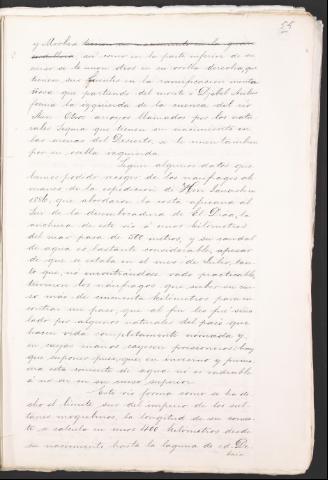 54
y Morbea
así como en la parte inferior de su
curso se le unen otros en su orilla derecha, que
tienen sus fuentes en la ramificacion monta
ñosa que partiendo del monte o Djebel
forma la izquierda de la cuenca del rio
Otros arroyos llamados por los natu
rales que tienen su nacimiento en
las arenas del Desierto, a le
por su orilla izquierda.
Segun algunos datos que
hemos podido recoger de los naufragos ale
manes de la expedicion de
1886, que abordaron la costa africana al
Sur de la desembocadura de El Draa, la
anchura de este rio á unos kilometros
del mar pasa de 500 metros, y su caudal
de agua es bastante considerable, apesar
de que se estaba en el mes de Julio, tan
to que, no encontrándose vado practicable,
tuvieron los naufragos que subir en su cur
so más de cincuenta kilometros para en
contrar un paso, que al fin les fué seña
lado por algunos naturales del pais que
hacen vida completamente nomada y,
en cuyas manos cayeron prisioneros: hay
que suponer pues, que en invierno y prima
vera esta corriente de agua no es vadeable
á no ser en su curso superior.
Este rio forma como se ha di
cho el limite sur del imperio de los sul
tanes mogrebinos, la longitud de su curso
se calcula en unos 400 kilometros desde
su nacimiento hasta la laguna de ed-De
baia